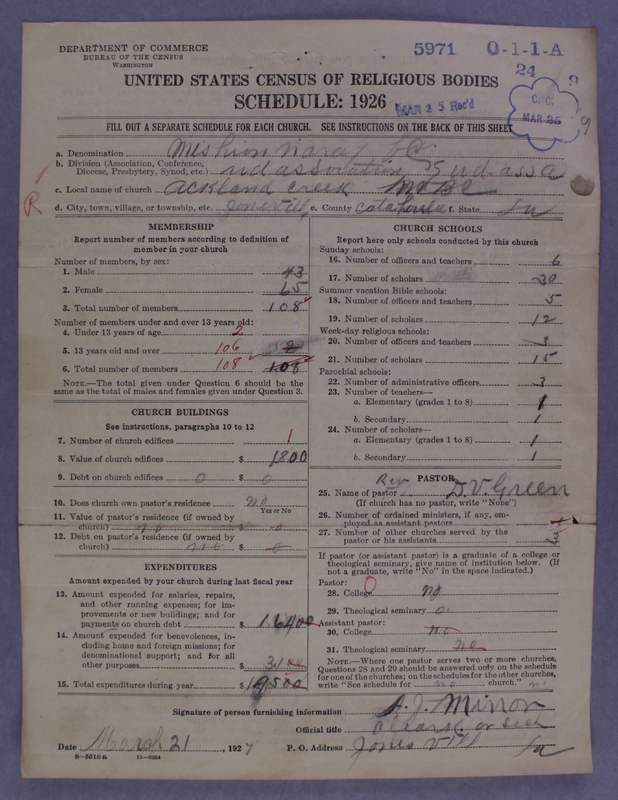 DEPARTMENT OF COMMERCE
BUREAU OF THE CENSUS
WASHINGTON
5971 O-1-1-A
24
UNITED STATES CENSUS OF RELIGIOUS BODIES
SCHEDULE: 1926
MAR 25 Rec'd
C.C.
MAR 25
9
FILL OUT A SEPARATE SCHEDULE FOR EACH CHURCH. SEE INSTRUCTIONS ON THE BACK OF THIS SHEET
a. Denomination
b. Division (Association, Conference,
Diocese, Presbytery, Synod, etc.)
c. Local name of church Ackland Creek
R
d. City, town, village, or township, etc. e. County f. State La
MEMBERSHIP
Report number of members according to definition of
member in your church
Number of members, by sex:
1. Male 43
2. Female 65
3. Total number of members 108
Number of members under and over 13 years old:
4. Under 13 years of age 2
5. 13 years old and over 106
6. Total number of members 108 108
NOTE.—The total given under Question 6 should be the
same as the total of males and females given under Question 3.
CHURCH BUILDINGS
See instructions, paragraphs 10 to 12
7. Number of church edifices 1
8. Value of church edifices $ 1800
9. Debt on church edifices 0 $ 0
10. Does church own pastor's residence no
Yes or No
11. Value of pastor's residence (if owned by
church) no $ 0
12. Debt on pastor's residence (if owned by
church) no $ 0
EXPENDITURES
Amount expended by your church during last fiscal year
13. Amount expended for salaries, repairs,
and other running expenses; for im-
provements or new buildings; and for
payments on church debt $ 16400
14. Amount expended for benevolences, in-
cluding home and foreign missions; for
denominational support; and for all
other purposes $ 3100
15. Total expenditures during year $ 19500
CHURCH SCHOOLS
Report here only schools conducted by this church
Sunday schools:
16. Number of officers and teachers 6
17. Number of scholars 30
Summer vacation Bible schools:
18. Number of officers and teachers 5
19. Number of scholars 12
Week-day religious schools:
20. Number of officers and teachers 3
21. Number of scholars 15
Parochial schools:
22. Number of administrative officers 3
23. Number of teachers—
a. Elementary (grades 1 to 8) 1
b. Secondary 1
24. Number of scholars—
a. Elementary (grades 1 to 8) 1
b. Secondary 1
PASTOR
25. Name of pastor Rev D.V. Green
(If church has no pastor, write "None")
26. Number of ordained ministers, if any, em-
ployed as assistant pastors
27. Number of other churches served by the
pastor or his assistants 3
If pastor (or assistant pastor) is a graduate of a college or
theological seminary, give name of institution below. (If
not a graduate, write "No" in the space indicated.)
Pastor:
28. College 0 no
29. Theological seminary 0
Assistant pastor:
30. College no
31. Theological seminary no
NOTE.—Where one pastor serves two or more churches,
Questions 28 and 29 should be answered only on the schedule
for one of the churches; on the schedules for the other churches,
write "See schedule for no church." no
Signature of person furnishing information
Official title
Date March 21, 1927 P. O. Address La
8—5518a 11—9264